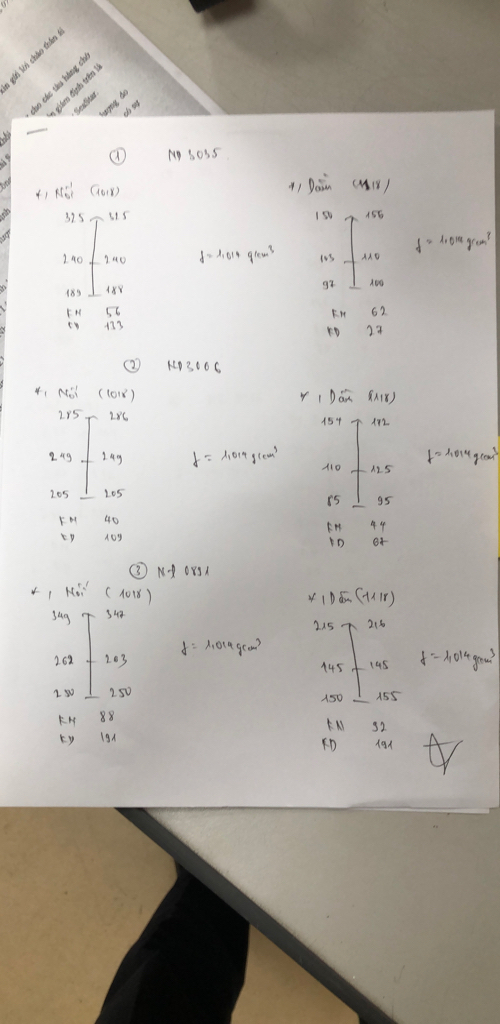 ① NĐ 3035
*, Nổi (1018)
325 325
240 240
189 188
KM 56
KD 133
f = 1,014 g/cm³
*, Dằn (1118)
150 156
103 110
97 100
KM 62
KD 27
f = 1,014 g/cm³
② NĐ3006
*, Nổi (1018)
285 286
249 249
205 205
KM 40
KD 109
f = 1,014 g/cm³
*, Dằn (1118)
154 172
110 125
85 95
KM 44
KD 67
f = 1,014 g/cm³
③ NĐ 0891
*, Nổi (1018)
349 347
262 263
250 250
KM 88
KD 191
f = 1,014 g/cm³
*, Dằn (1118)
215 216
145 145
150 155
KM 92
KD 191
f = 1,014 g/cm³